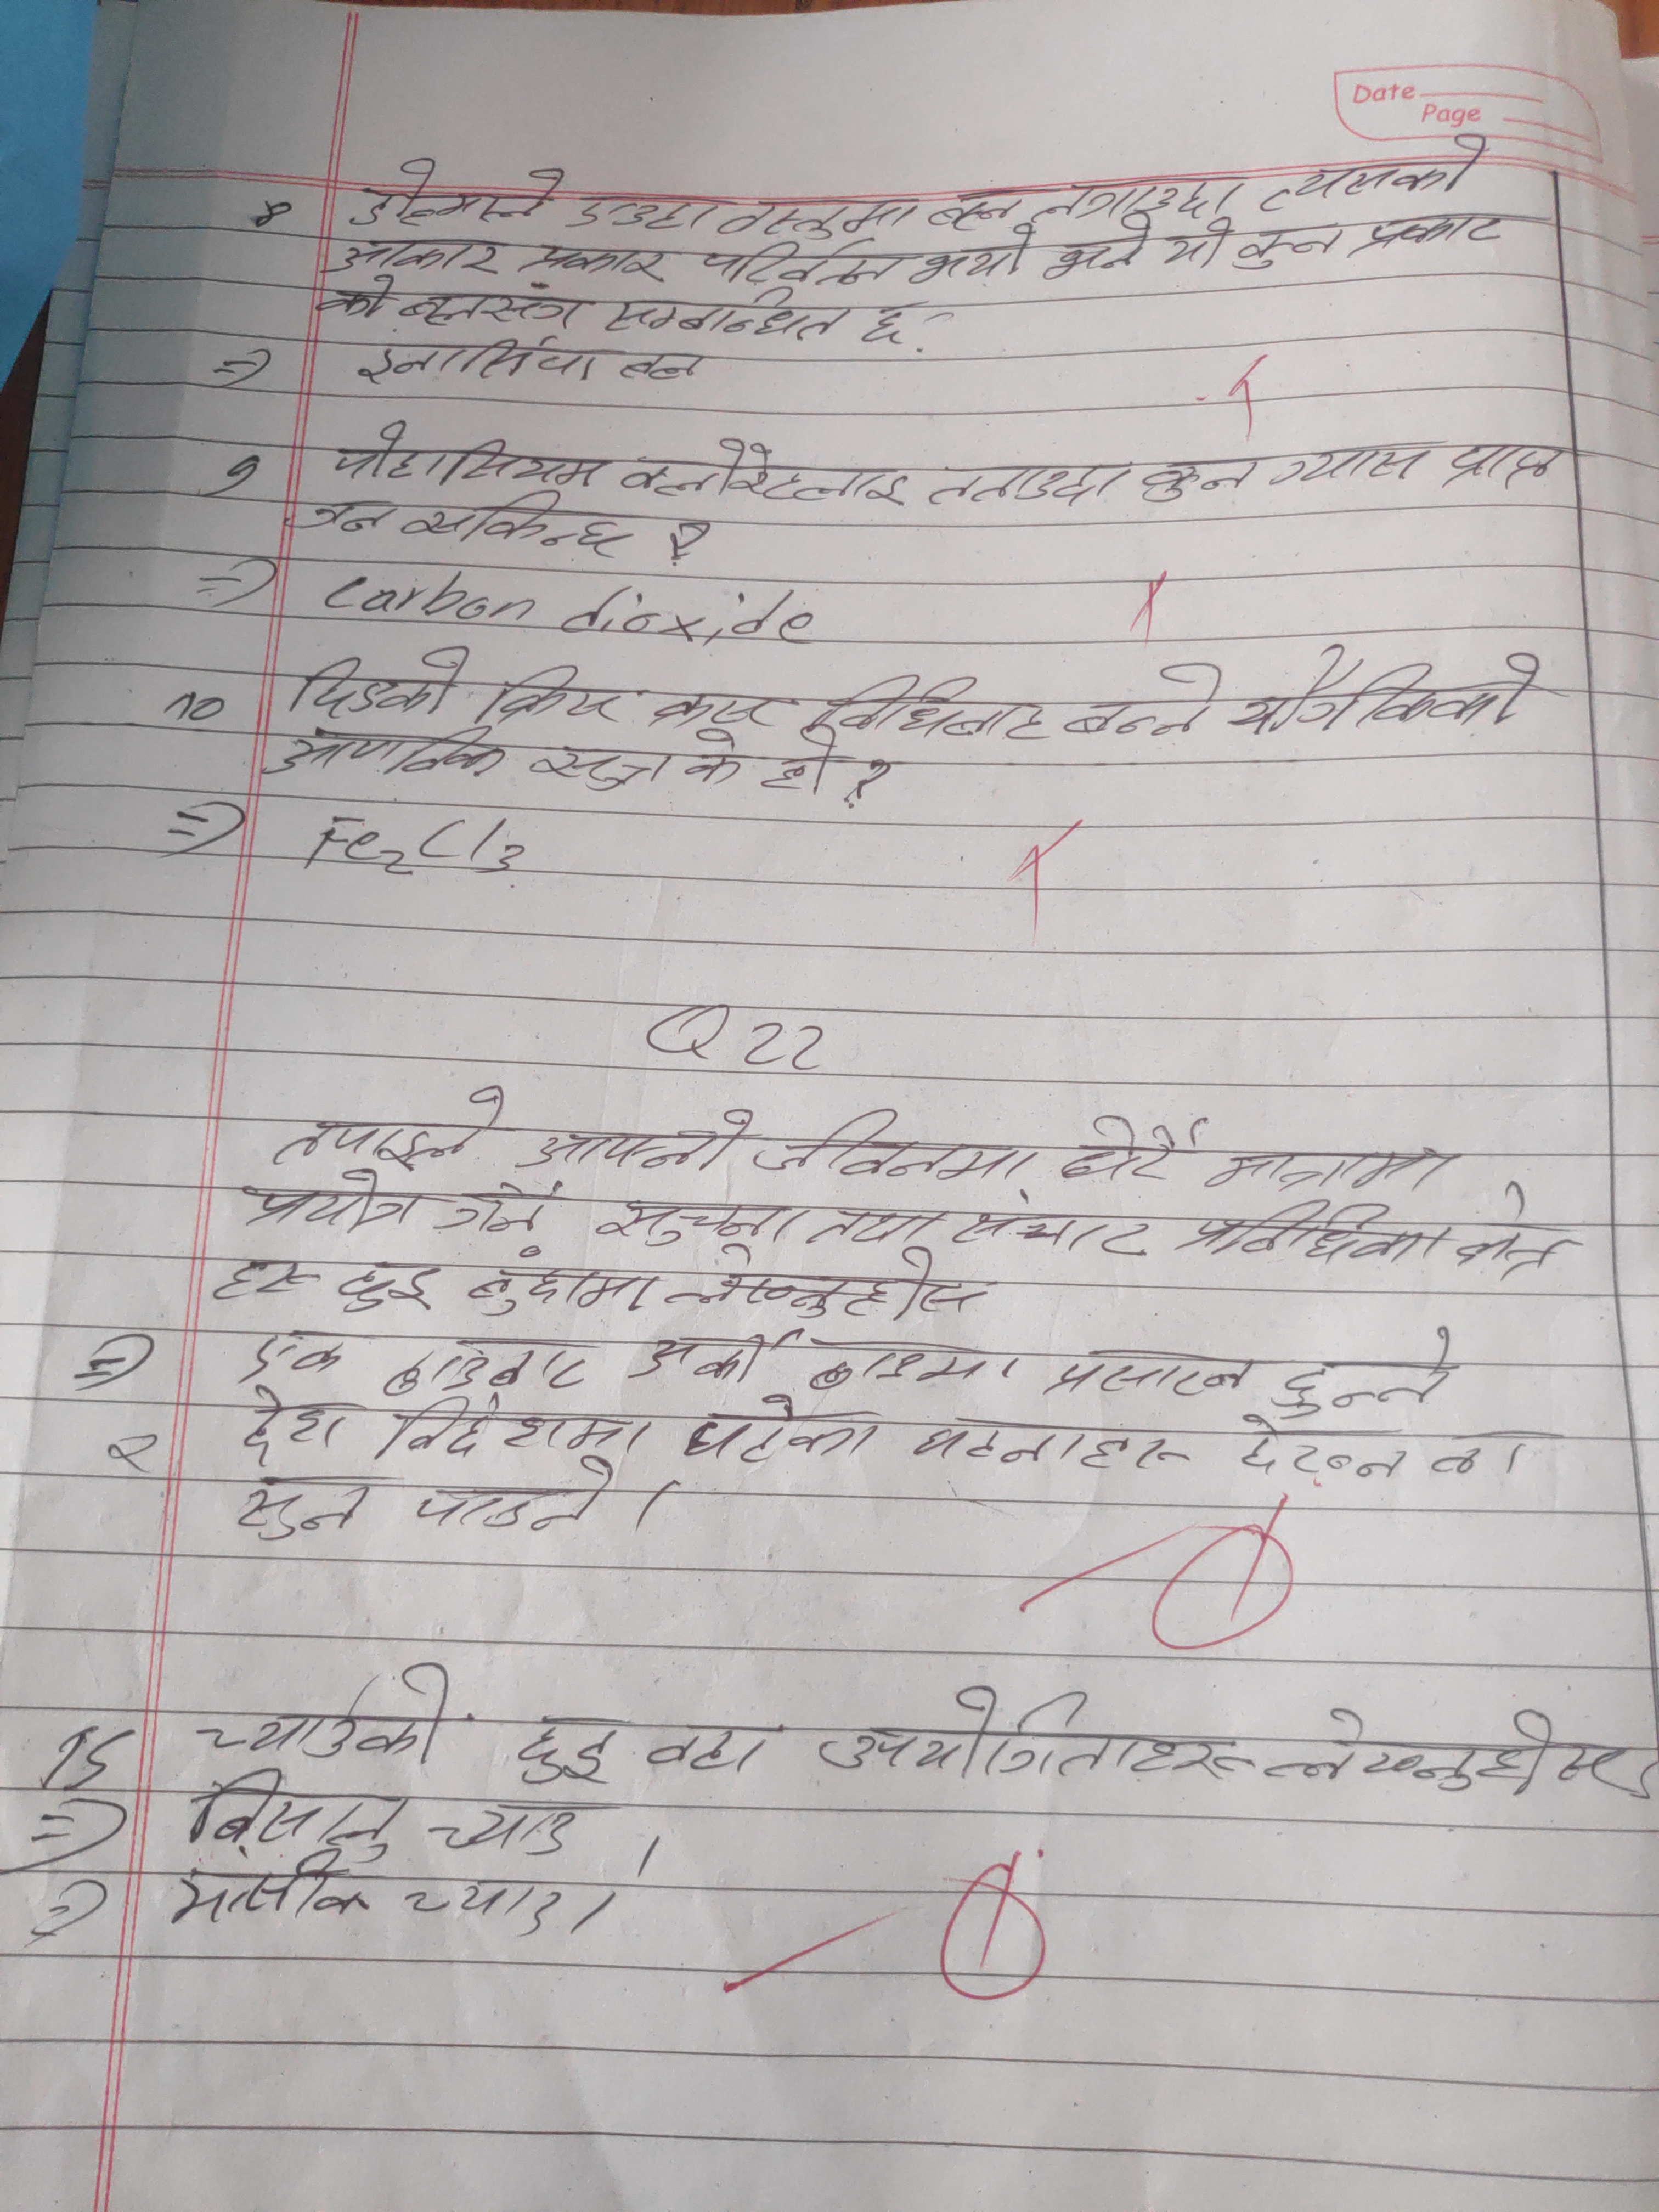 Date
Page
8 डोल्माले एउटा वस्तुमा बल लगाउदा त्यसको
आकार प्रकार परिर्वतन भयो भने यो कुन प्रकार
को बलसंग सम्बन्धित छ?
=> इनार्सिया बल
9 पोटासियम क्लोरेटलाइ तताउदा कुन ग्यास प्राप्त
गन सकिन्छ ?
=> carbon dioxide
10 को क्रिस क्रस बिधिबाट बन्ने यौगिकको
आणविक सुत्र के हो ?
=> Fe2Cl3
Q 22
तपाइले आफ्नो जीवनमा धेरै मात्रामा
प्रयोग गर्ने सुचना तथा संचार प्रबिधिका क्षेत्र
हरु दुइ बुंदामा लेख्नुहोस
=> एक ठाउबाट अर्को ठाउमा प्रसारन हुन्ने
२ देश बिदेशमा घटेका घटनाहरु देख्न वा
सुन्न पाउने ।
15 च्याउको दुइ वटा उपयोगिताहरु लेख्नुहोस
=> बिसालु च्याउ ।
=> च्याउ ।